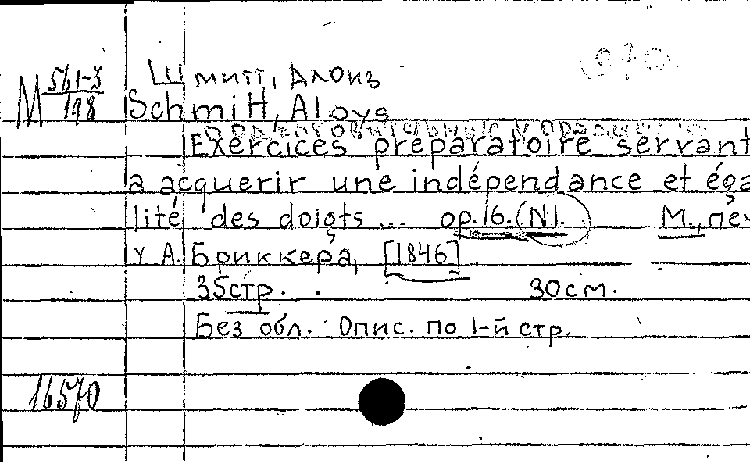 М 561-3
198
Шмитт, Алоиз
Schmitt, Aloys
Exercices préparatoire servant
a acquerir une indépendance et éga
lité des doigts... op. 16. (N). М., печ
у А. Бриккера, [1846]
35 стр. 30 см.
Без обл. Опис. по 1-й стр.
16570